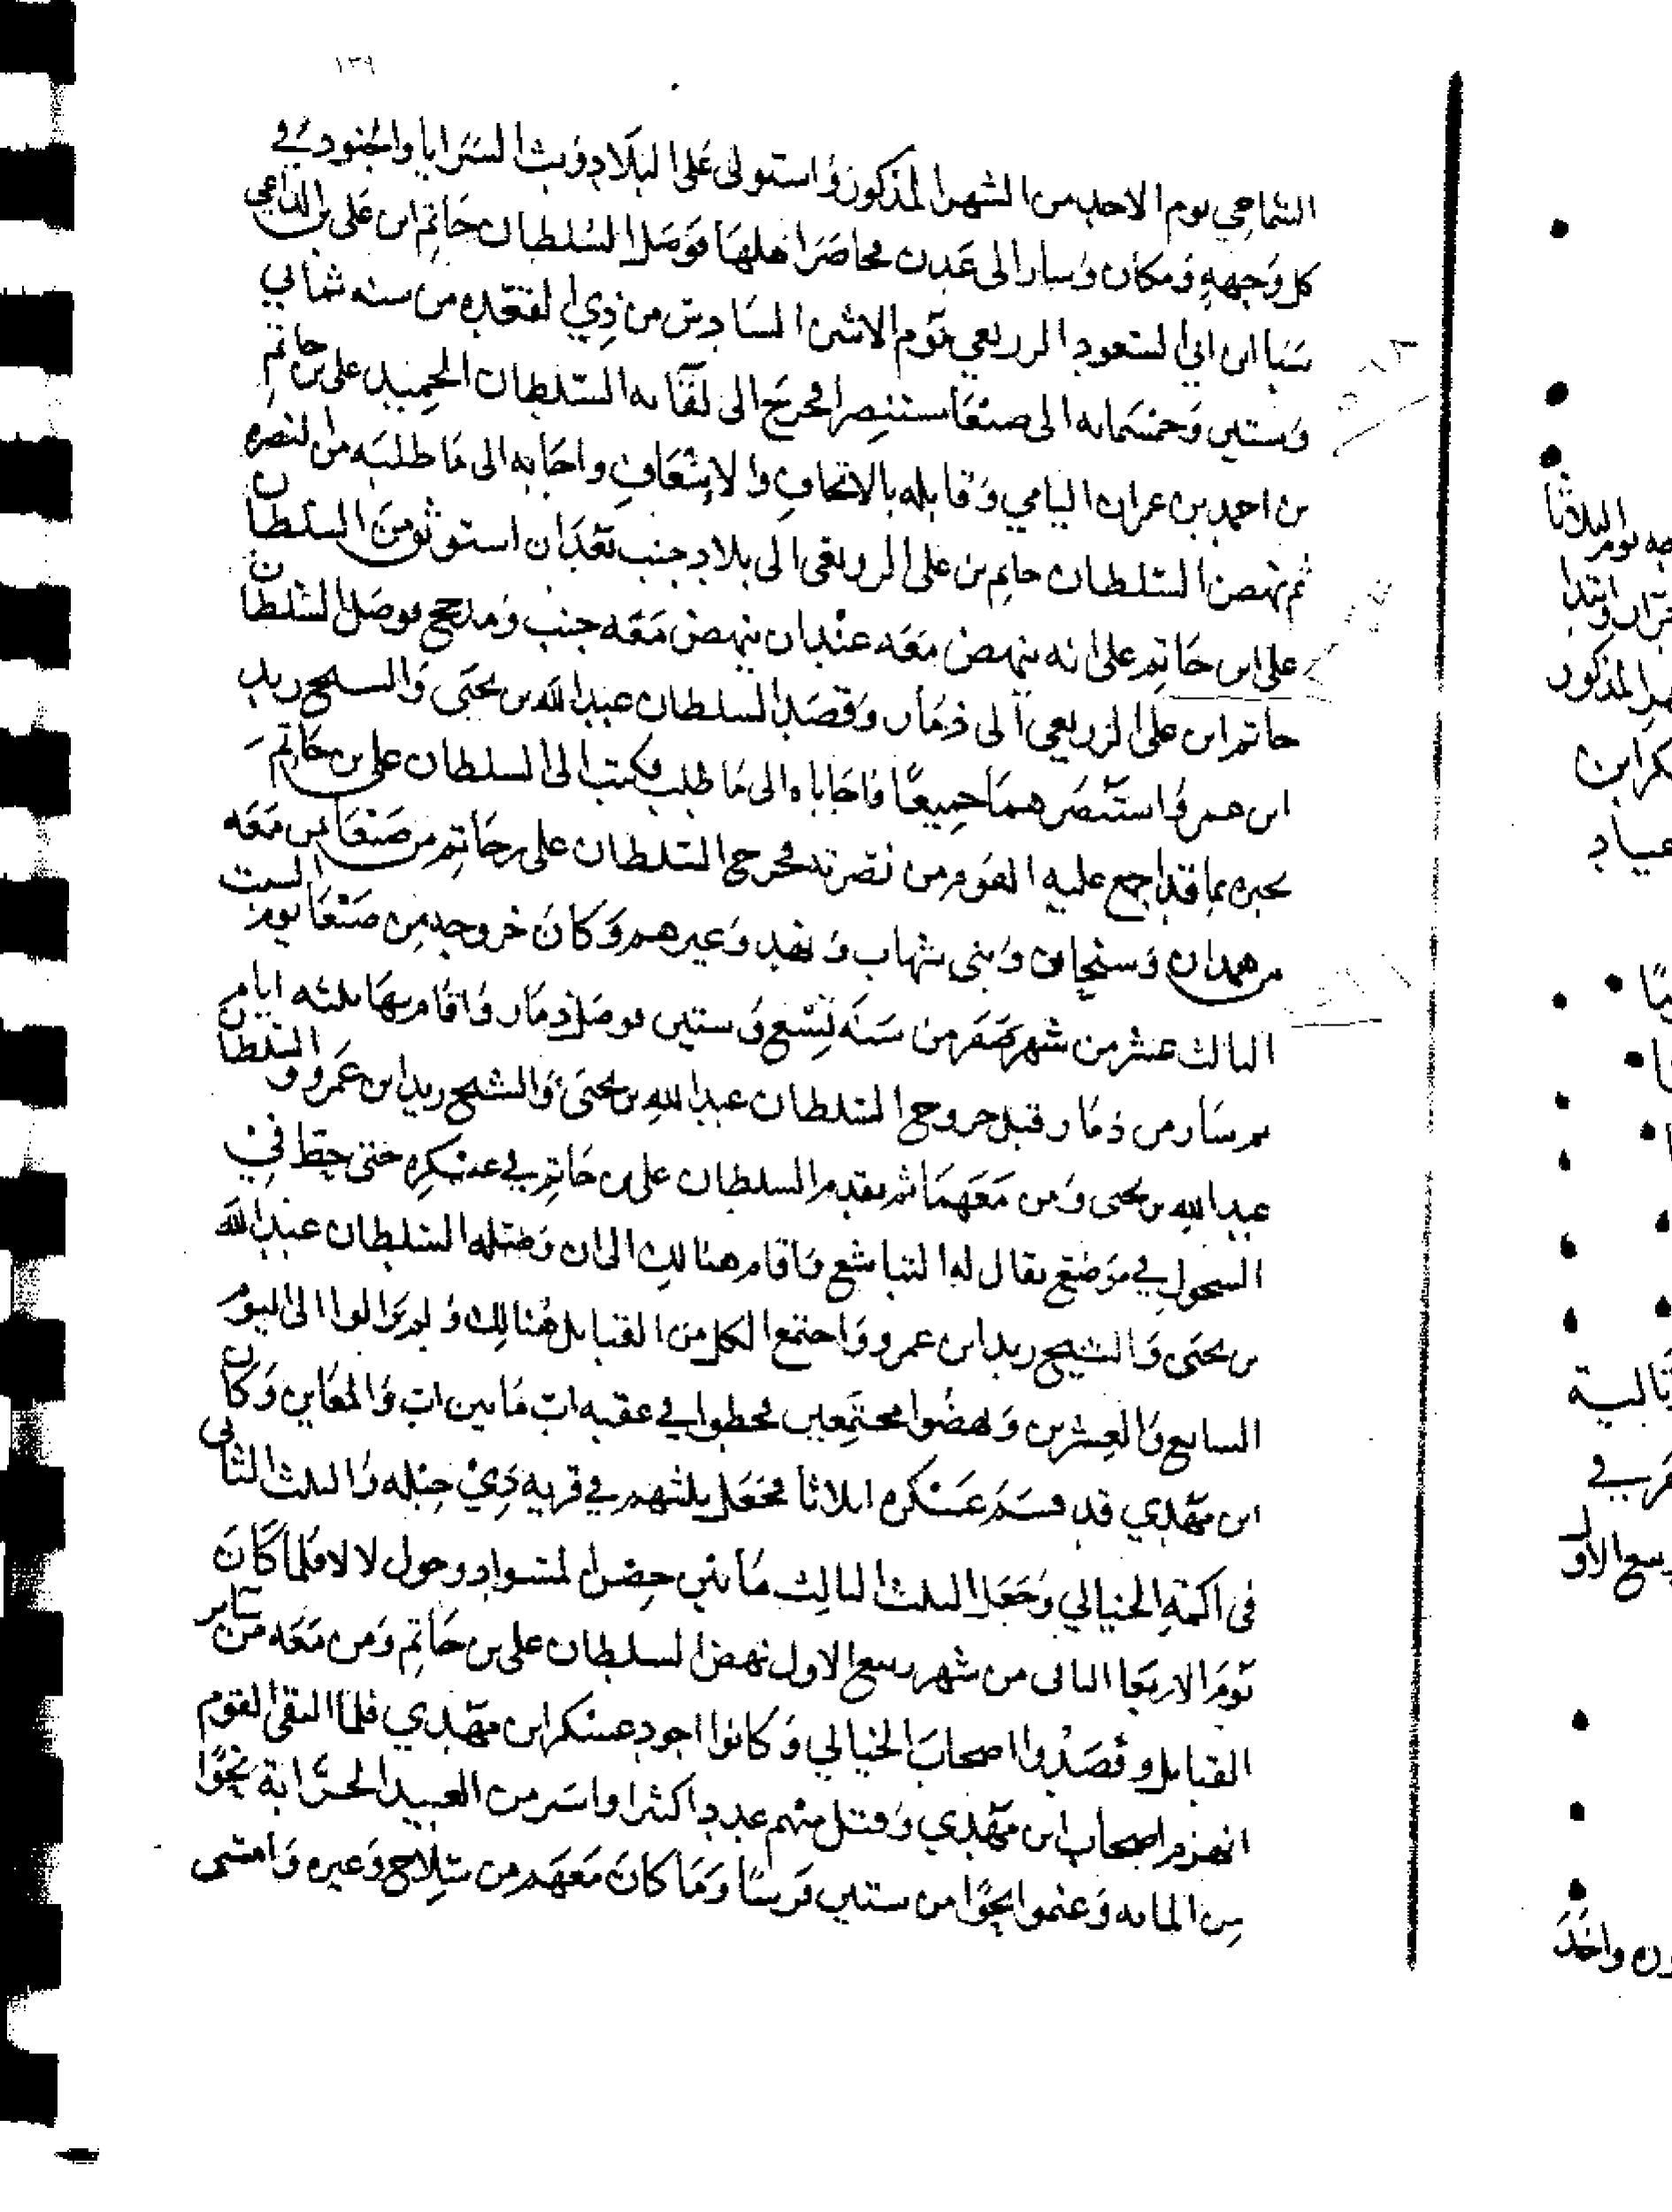 ١٣٩
الشماحي يوم الاحد من الشهر المذكور واستولى على البلاد وبث السرايا والجنود في
كل وجهة ومكان وسار الى عدن محاصرا اهلها فوصل السلطان حاتم ابن علي بن الداعي
سبا ابن ابي السعود الزريعي يوم الاثنين السادس من ذي القعده من سنه ثماني
وستين وخمسمايه الى صنعا مستنصرا فخرج الى لقائه السلطان الحميد علي بن حاتم
بن احمد بن عمران اليامي وقابله بالاتحاف والاسعاف واجابه الى ما طلبه من النصره
ثم نهض السلطان حاتم بن علي الزريعي الى بلاد جنب بعد ان استوثق من السلطان
علي ابن حاتم على انه ينهض معه عند ان ينهض معه جنب ومذحج فوصل السلطان
حاتم ابن علي الزريعي الى ذمار وقصد السلطان عبد الله بن يحيى والشيخ زيد
ابن عمرو استنصرهما جميعا فاجاباه الى ما طلب فكتب الى السلطان علي بن حاتم
يخبره بما قد اجمع عليه القوم من نصرته فخرج السلطان علي بن حاتم من صنعا بمن معه
من همدان وسنحان وبني شهاب ونهد وغيرهم وكان خروجه من صنعا يوم السبت
الثالث عشر من شهر صفر من سنه تسع وستين فوصل ذمار واقام بها ثلثه ايام
ثم سار من ذمار قبل خروج السلطان عبد الله بن يحيى والشيخ زيد ابن عمرو والسلطان
عبد الله بن يحيى ومن معهما ثم تقدم السلطان علي بن حاتم في عسكره حتى حط في
السحول في موضع يقال له فاقام هنالك الى ان وصله السلطان عبد الله
بن يحيى والشيخ زيد ابن عمرو واجتمع الكل من القبايل هنالك ولم يزالوا الى اليوم
السابع والعشرين ونهضوا مجتمعين فحطوا في عقبه اب ما بين اب والمعاين وكان
ابن مهدي قد قسم عسكره اثلاثا فجعل ثلثهم في قريه ذي جبله والثلث الثاني
في اكمة الخيالي وجعل الثلث الثالث ما بين حصن وحول لالا فلما كان
يوم الاربعا الثاني من شهر ربيع الاول نهض السلطان علي بن حاتم ومن معه من ساير
القبايل وقصدوا اصحاب الخيالي وكانوا اجود عسكر ابن مهدي فلما التقى القوم
انهزم اصحاب ابن مهدي وقتل منهم عددا كثرا واسر من العبيد الحرابة نحوا
من المايه وغنموا نحوا من ستين فرسا وما كان معهم من سلاح وغيره وامسى
المذكور
عباد
ربيع الاول